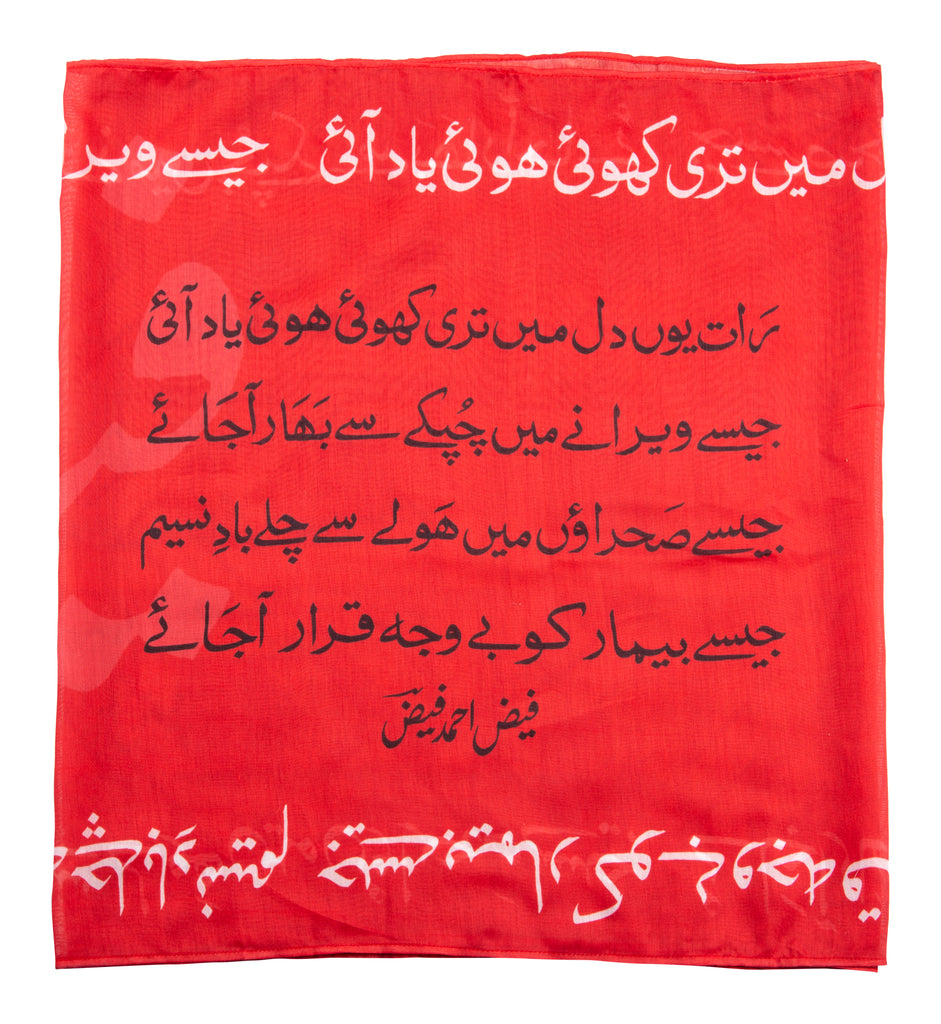 میں تری کھوئی ہوئی یاد آئی جیسے ویر
رَات یوں دل میں تری کھوئی ہوئی یاد آئی
جیسے ویرانے میں چُپکے سے بَہَار آجَائے
جیسے صَحراؤں میں ہَولے سے چلے بادِ نسیم
جیسے بیمار کو بے وجہ قرار آجَائے
فیض احمد فیضؔ
چلے بادِ نسیم جیسے بیمار کو بے وجہ ق